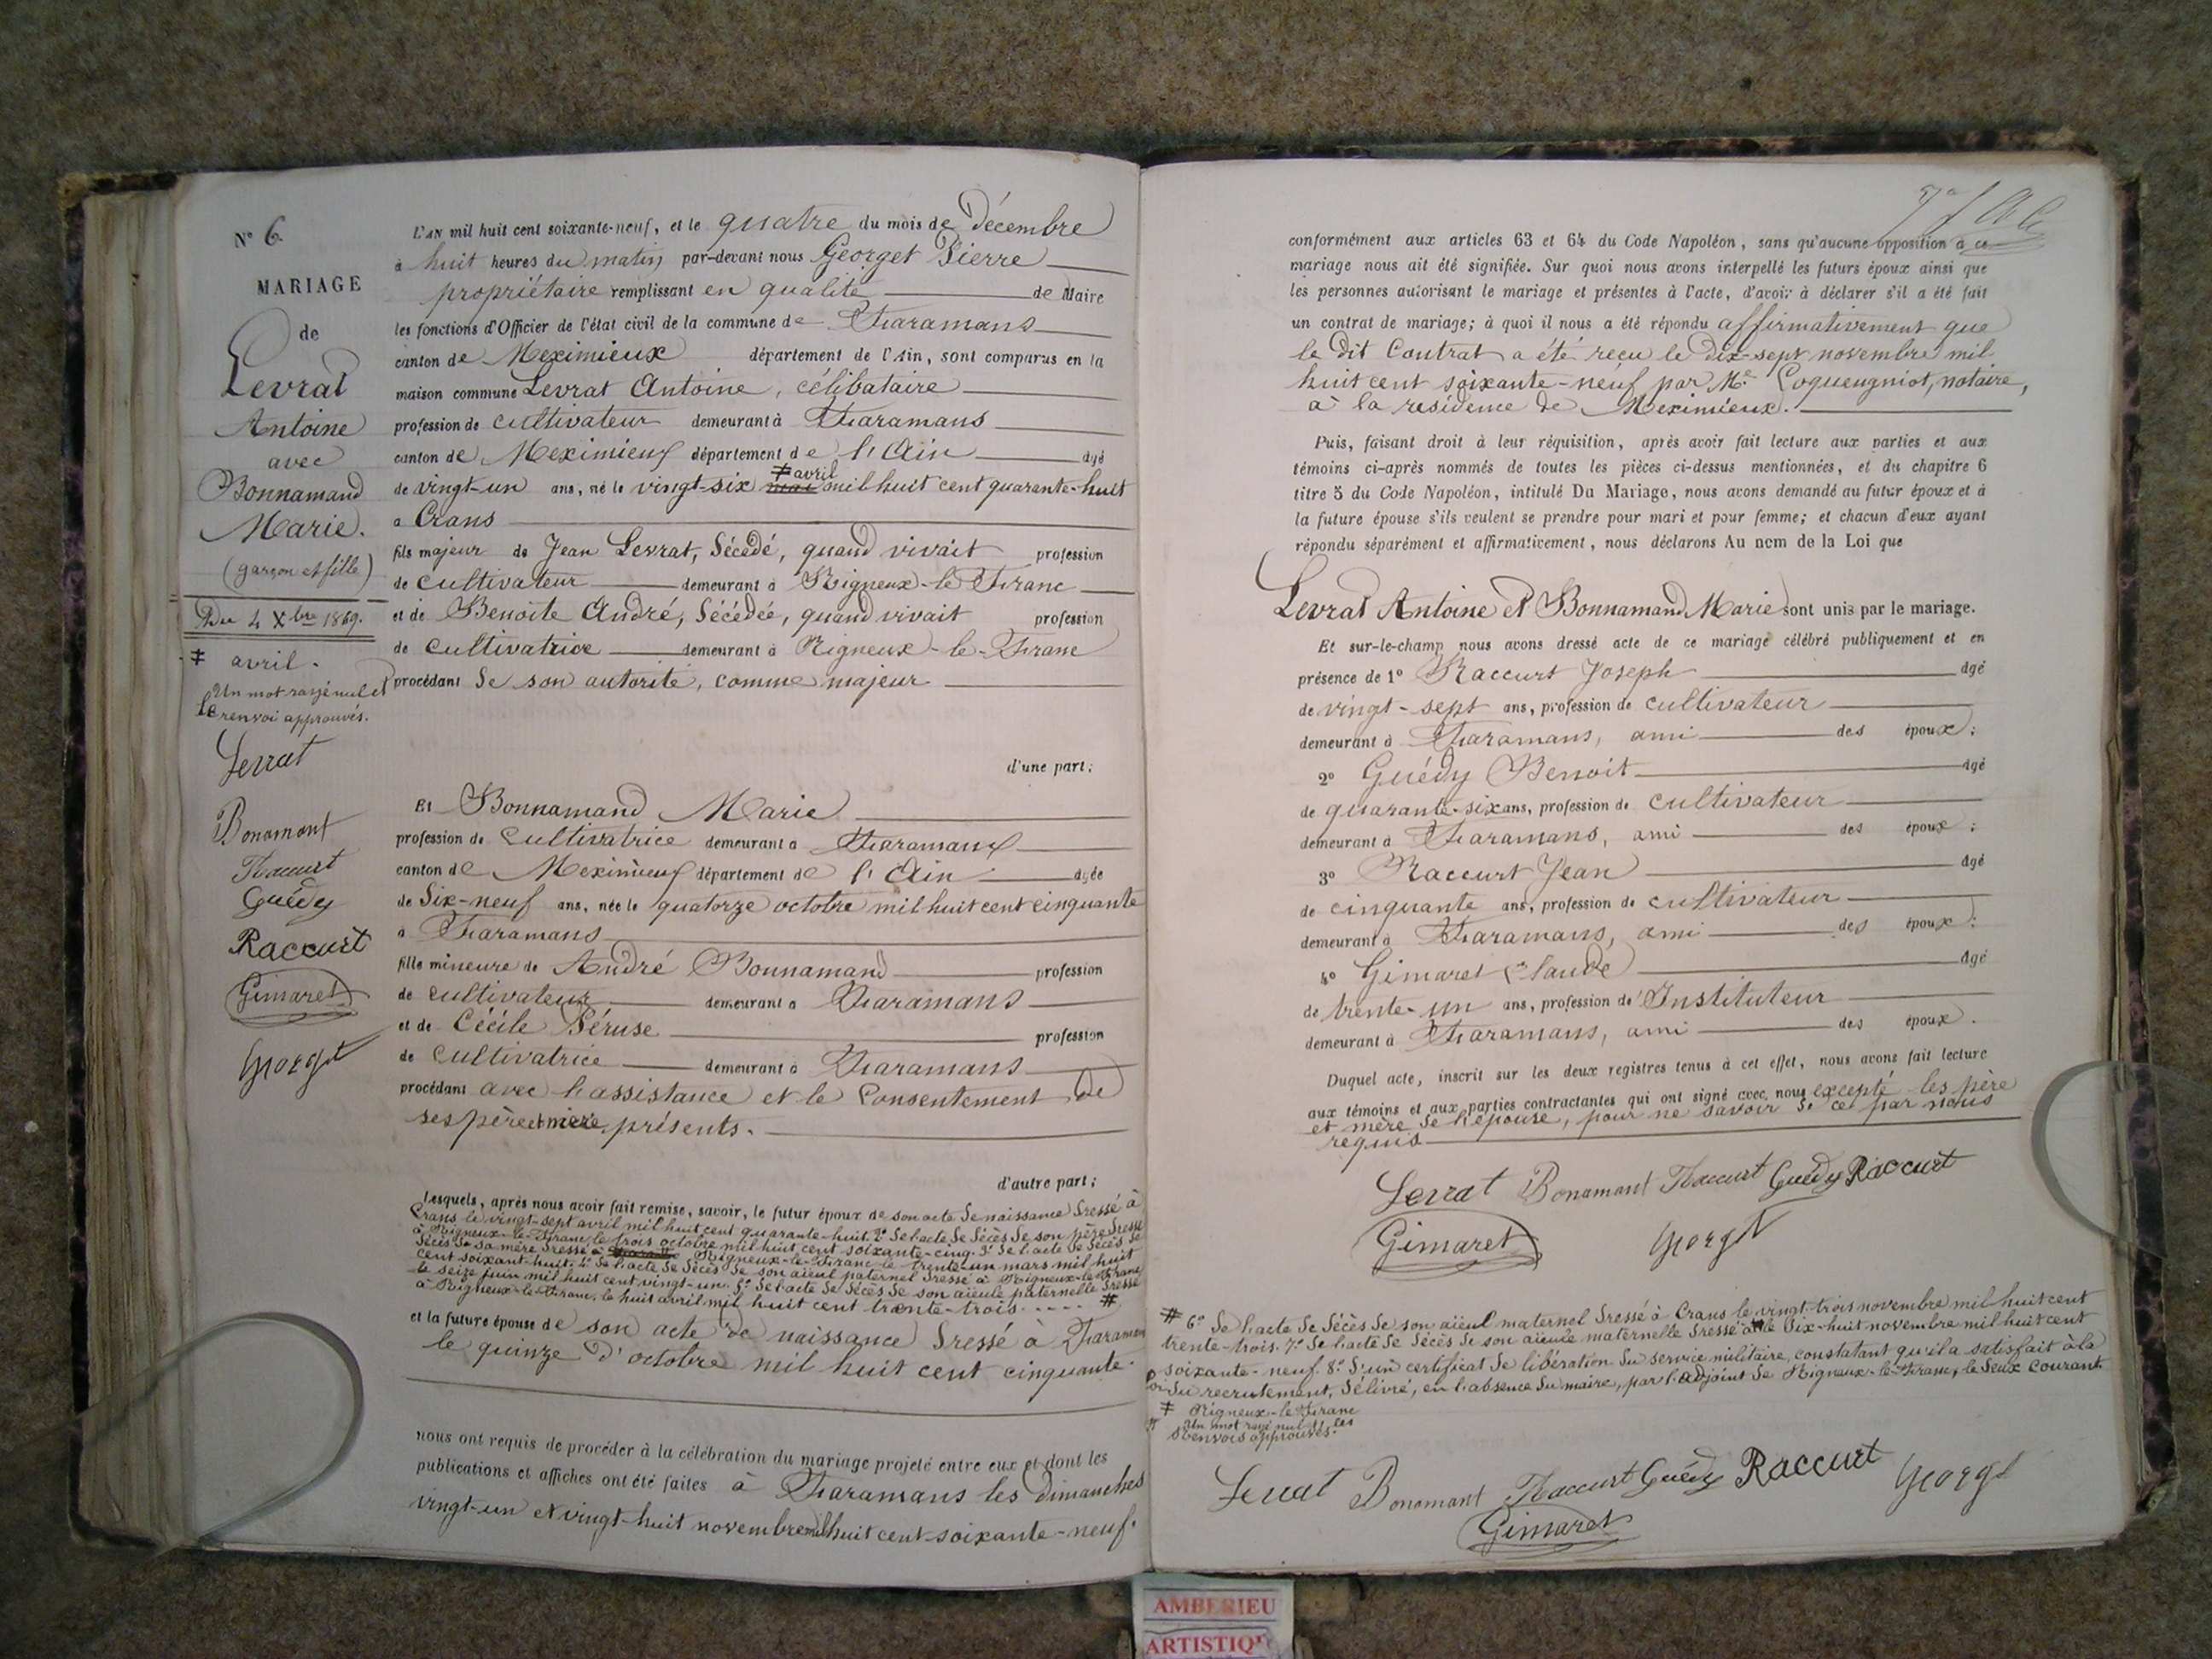 N° 6
MARIAGE
de
Levrat
Antoine
avec
Bonnamand
Marie.
(garçon et fille)
Du 4 Xbre 1869.
≠ avril.
Un mot rayé nul et
le renvoi approuvés.
Levrat
Bonamant
Raccurt
Guédy
Raccurt
Gimaret
Georget
L'AN mil huit cent soixante-neuf, et le quatre du mois de Décembre
à huit heures du matin par-devant nous Georget Pierre
propriétaire remplissant en qualité de Maire
les fonctions d'Officier de l'état civil de la commune de Faramans
canton de Meximieux département de l'Ain, sont comparus en la
maison commune Levrat Antoine, célibataire
profession de cultivateur demeurant à Faramans
canton de Meximieux département de l'Ain âgé
de vingt-un ans, né le vingt-six mai ≠ avril mil huit cent quarante-huit
à Crans
fils majeur de Jean Levrat, décédé, quand vivait profession
de cultivateur demeurant à Rigneux-le-Franc
et de Benoite André, décédée, quand vivait profession
de cultivatrice demeurant à Rigneux-le-Franc
procédant de son autorité, comme majeur
d'une part;
Et Bonnamand Marie
profession de cultivatrice demeurant à Faramans
canton de Meximieux département de l'Ain âgée
de dix-neuf ans, née le quatorze octobre mil huit cent cinquante
à Faramans
fille mineure de André Bonnamand profession
de cultivateur demeurant à Faramans
et de Cécile Péruse profession
de cultivatrice demeurant à Faramans
procédant avec l'assistance et le consentement de
ses père et mère, présents.
d'autre part;
Lesquels, après nous avoir fait remise, savoir, le futur époux de son acte de naissance dressé à
Crans le vingt-sept avril mil huit cent quarante-huit. 2° de l'acte de décès de son père dressé
à Rigneux-le-Franc le trois octobre mil huit cent soixante-cinq. 3° de l'acte de décès de
décès de sa mère dressé à Rigneux-le-Franc le trente-un mars mil huit
cent soixante-huit. 4° de l'acte de décès de son aïeul paternel dressé à Rigneux-le-Franc
le seize juin mil huit cent vingt-un. 5° de l'acte de décès de son aïeule paternelle dressé
à Rigneux-le-Franc, le huit avril mil huit cent trente-trois. #
et la future épouse de son acte de naissance dressé à Faramans
le quinze d'octobre mil huit cent cinquante.
nous ont requis de procéder à la célébration du mariage projeté entre eux et dont les
publications et affiches ont été faites à Faramans les dimanches
vingt-un et vingt-huit novembre mil huit cent soixante-neuf.
conformément aux articles 63 et 64 du Code Napoléon, sans qu'aucune opposition à ce
mariage nous ait été signifiée. Sur quoi nous avons interpellé les futurs époux ainsi que
les personnes autorisant le mariage et présentes à l'acte, d'avoir à déclarer s'il a été fait
un contrat de mariage; à quoi il nous a été répondu affirmativement que
le dit Contrat a été reçu le dix-sept novembre mil
huit cent soixante-neuf par Me Coqueugniot, notaire,
à la résidence de Meximieux.
Puis, faisant droit à leur réquisition, après avoir fait lecture aux parties et aux
témoins ci-après nommés de toutes les pièces ci-dessus mentionnées, et du chapitre 6
titre 5 du Code Napoléon, intitulé Du Mariage, nous avons demandé au futur époux et à
la future épouse s'ils veulent se prendre pour mari et pour femme; et chacun d'eux ayant
répondu séparément et affirmativement, nous déclarons Au nom de la Loi que
Levrat Antoine et Bonnamand Marie sont unis par le mariage.
Et sur-le-champ nous avons dressé acte de ce mariage célébré publiquement et en
présence de 1° Raccurt Joseph âgé
de vingt-sept ans, profession de cultivateur
demeurant à Faramans, ami des époux;
2° Guédy Benoit âgé
de quarante-six ans, profession de cultivateur
demeurant à Faramans, ami des époux;
3° Raccurt Jean âgé
de cinquante ans, profession de cultivateur
demeurant à Faramans, ami des époux;
4° Gimaret Claude âgé
de trente-un ans, profession de Instituteur
demeurant à Faramans, ami des époux.
Duquel acte, inscrit sur les deux registres tenus à cet effet, nous avons fait lecture
aux témoins et aux parties contractantes qui ont signé avec nous excepté les père
et mère de l'épouse, pour ne savoir de ce par nous
requis
Levrat Bonamant Raccurt Guédy Raccurt
Gimaret Georget
# 6° de l'acte de décès de son aïeul maternel dressé à Crans le vingt-trois novembre mil huit cent
trente-trois. 7° de l'acte de décès de son aïeule maternelle dressé à ≠ le dix-huit novembre mil huit cent
soixante-neuf. 8° d'un certificat de libération du service militaire, constatant qu'il a satisfait à la
loi du recrutement, délivré, en l'absence du maire, par l'adjoint de Rigneux-le-Franc, le deux courant.
≠ Rigneux-le-Franc
Un mot rayé nul et les
renvois approuvés.
Levrat Bonamant Raccurt Guédy Raccurt Georget
Gimaret
AMBERIEU
ARTISTIQU